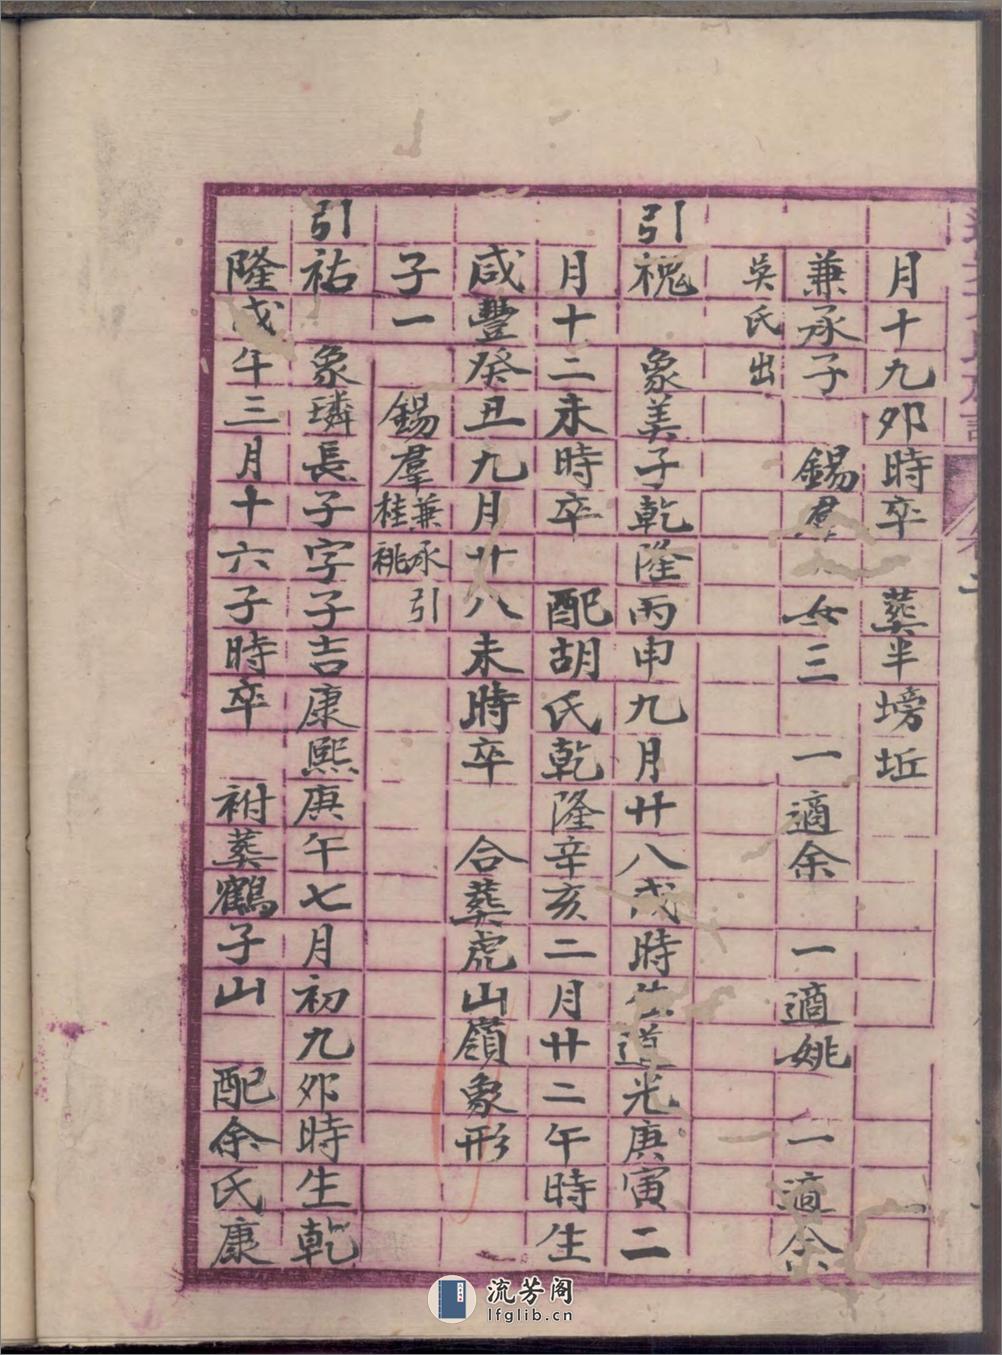 月十九卯時卒 葬半塝坵
兼承子 錫羣 女三 一適余 一適姚 一適余
吳氏出
引槐 象美子乾隆丙申九月廿八戌時生道光庚寅二
月十二未時卒 配胡氏乾隆辛亥二月廿二午時生
咸豐癸丑九月廿八未時卒 合葬虎山嶺象形
子一 錫羣兼承引桂祧
引祐 象璘長子字子吉康熙庚午七月初九卯時生乾
隆戊午三月十六子時卒 祔葬鶴子山 配余氏康
流芳阁
lfglib.cn